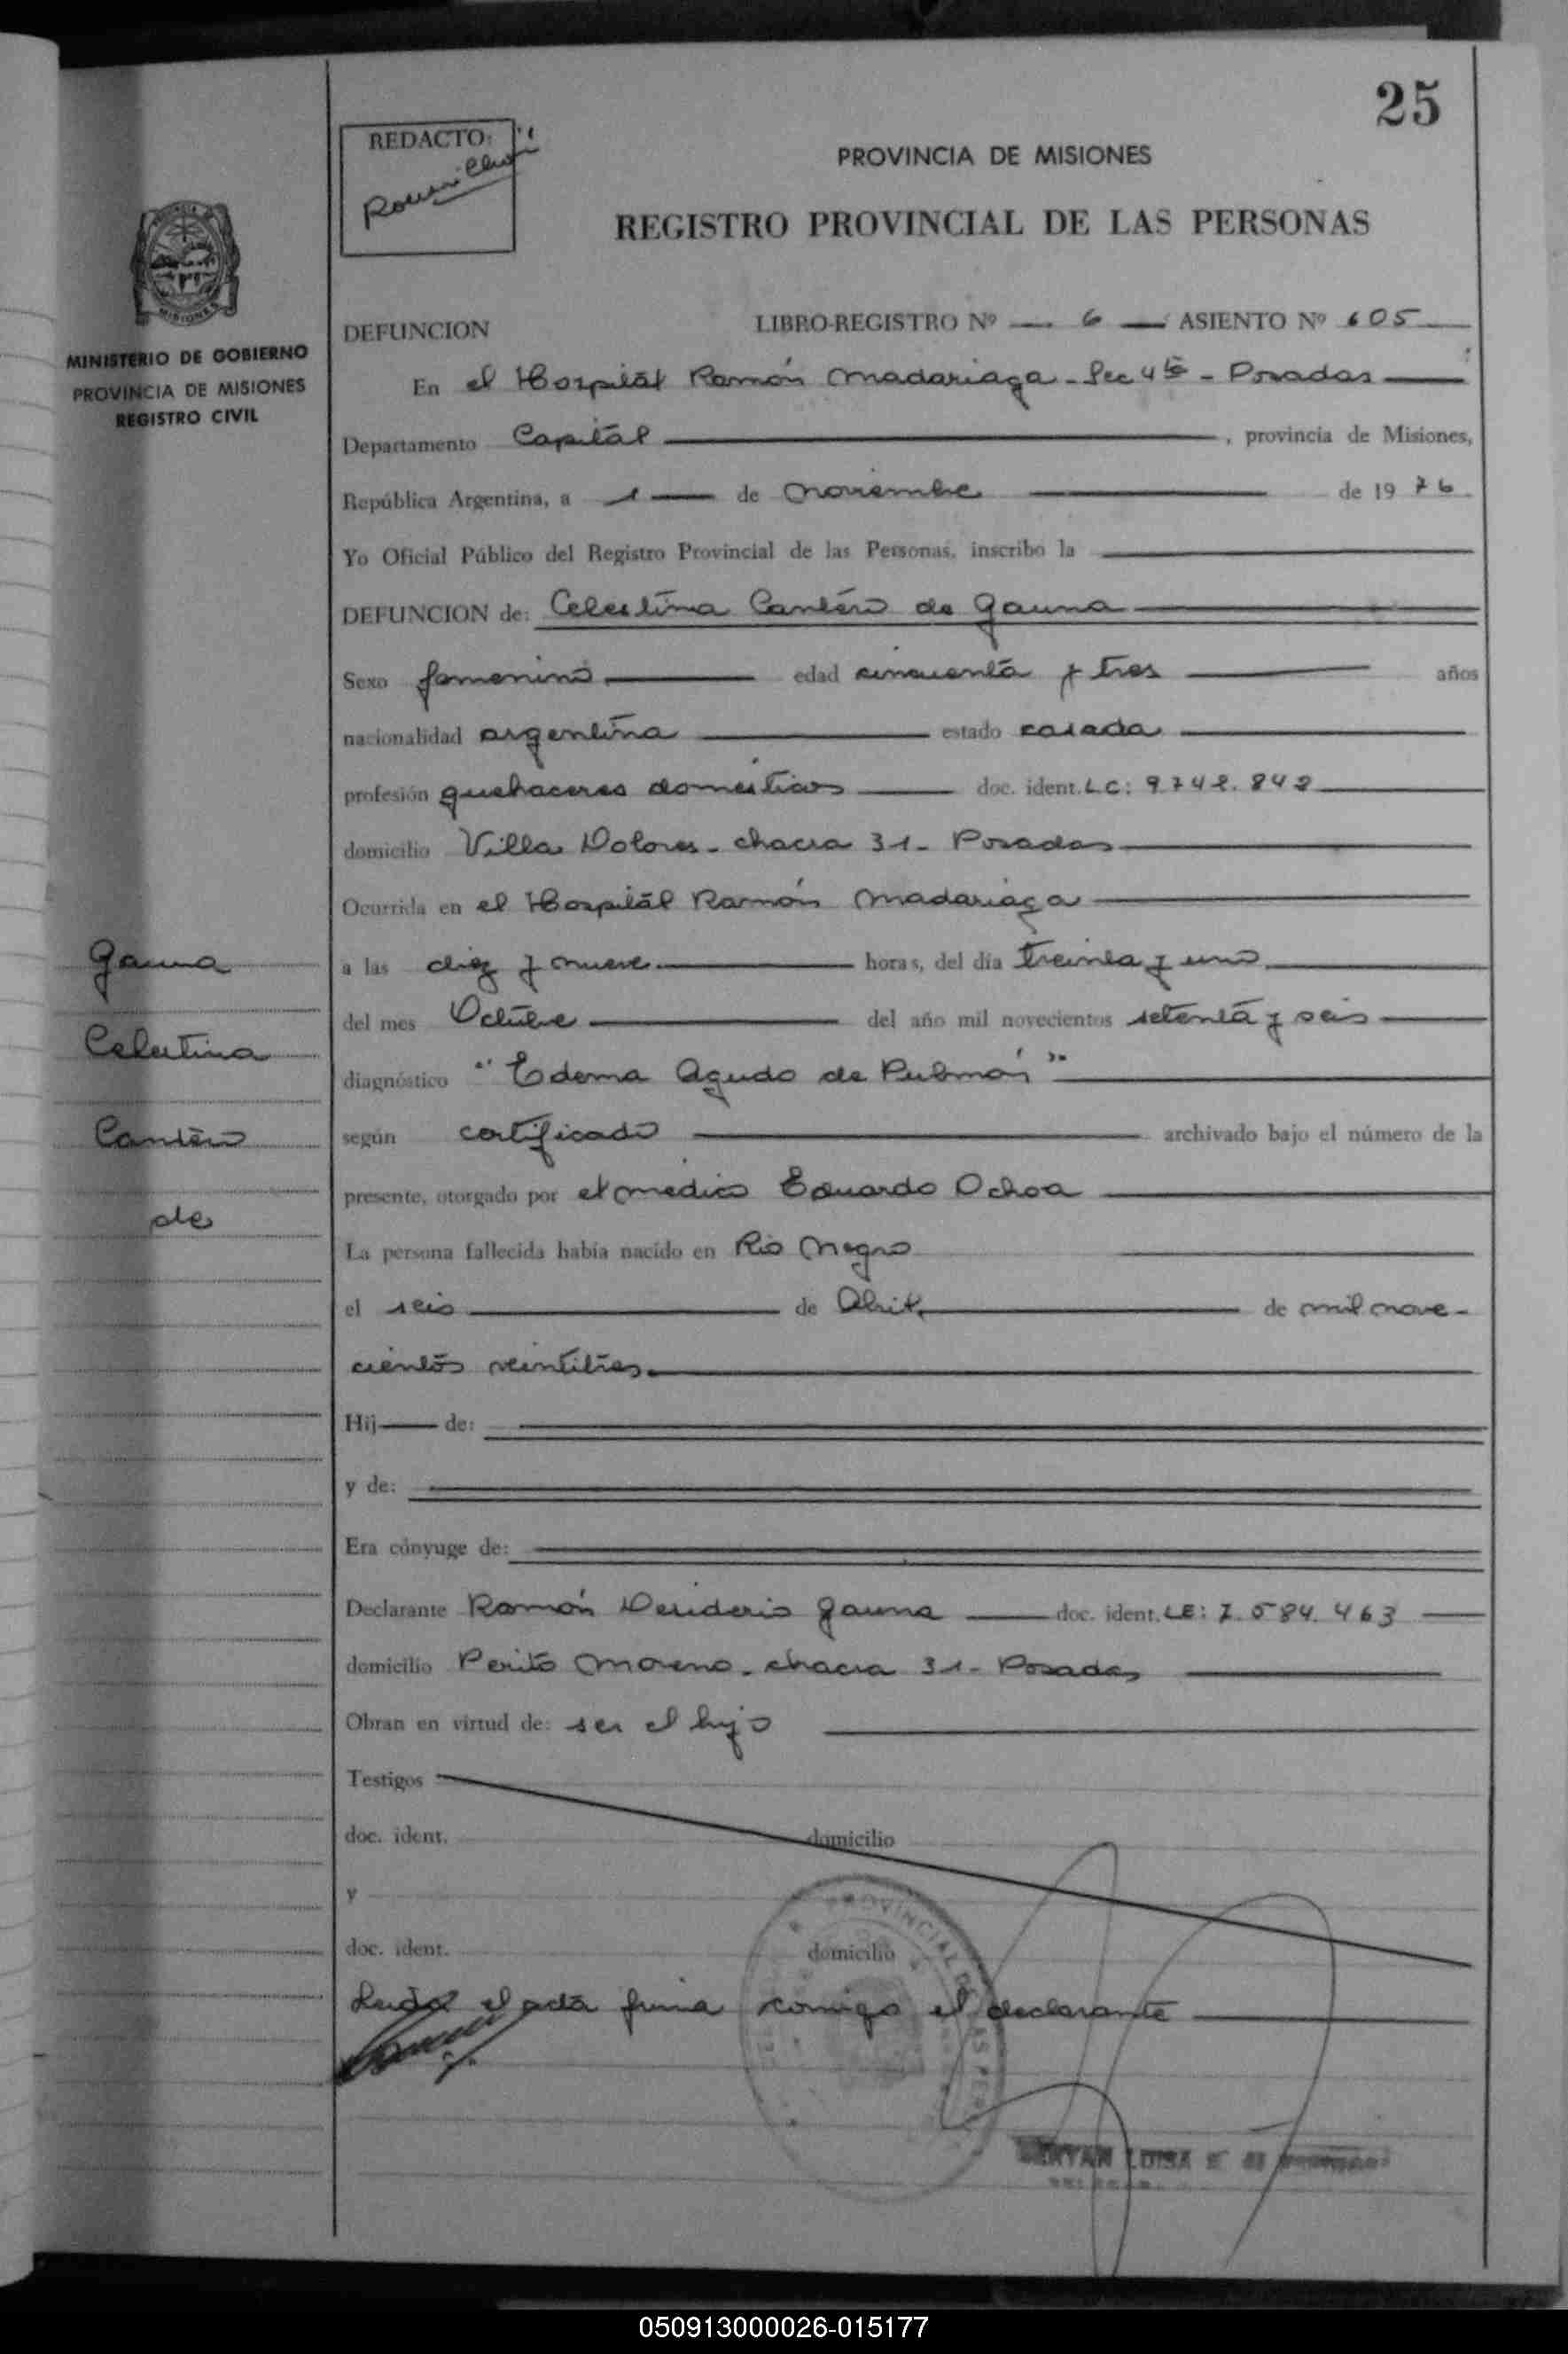 25
REDACTO:
PROVINCIA DE MISIONES
REGISTRO PROVINCIAL DE LAS PERSONAS
MISIONES
MINISTERIO DE GOBIERNO
PROVINCIA DE MISIONES
REGISTRO CIVIL
DEFUNCION LIBRO-REGISTRO Nº 6 ASIENTO Nº 605
En el Hospital Ramón Madariaga - Sec 4ta - Posadas
Departamento Capital, provincia de Misiones,
República Argentina, a 1 de noviembre de 1976
Yo Oficial Público del Registro Provincial de las Personas, inscribo la
DEFUNCION de: Celestina Cantero de Gauna
Sexo femenino edad cincuenta y tres años
nacionalidad argentina estado casada
profesión quehaceres domésticos doc. ident. LC:
domicilio Villa Dolores - chacra 31 - Posadas
Ocurrida en el Hospital Ramón Madariaga
a las diez y nueve horas, del día treinta y uno
del mes Octubre del año mil novecientos setenta y seis
diagnóstico "Edema Agudo de Pulmón"
según certificado archivado bajo el número de la
presente, otorgado por el médico Eduardo Ochoa
La persona fallecida había nacido en Río Negro
el seis de Abril de mil nove-
cientos veintitres.
Hij de:
y de:
Era cónyuge de:
Declarante Ramón Desiderio Gauna doc. ident. LE: 7.584.463
domicilio Perito Moreno - chacra 31 - Posadas
Obran en virtud de: ser el hijo
Testigos
doc. ident. domicilio
y
doc. ident. domicilio
Leída el acta firma comigo el declarante
LUISA
Gauna
Celestina
Cantero
de
050913000026-015177